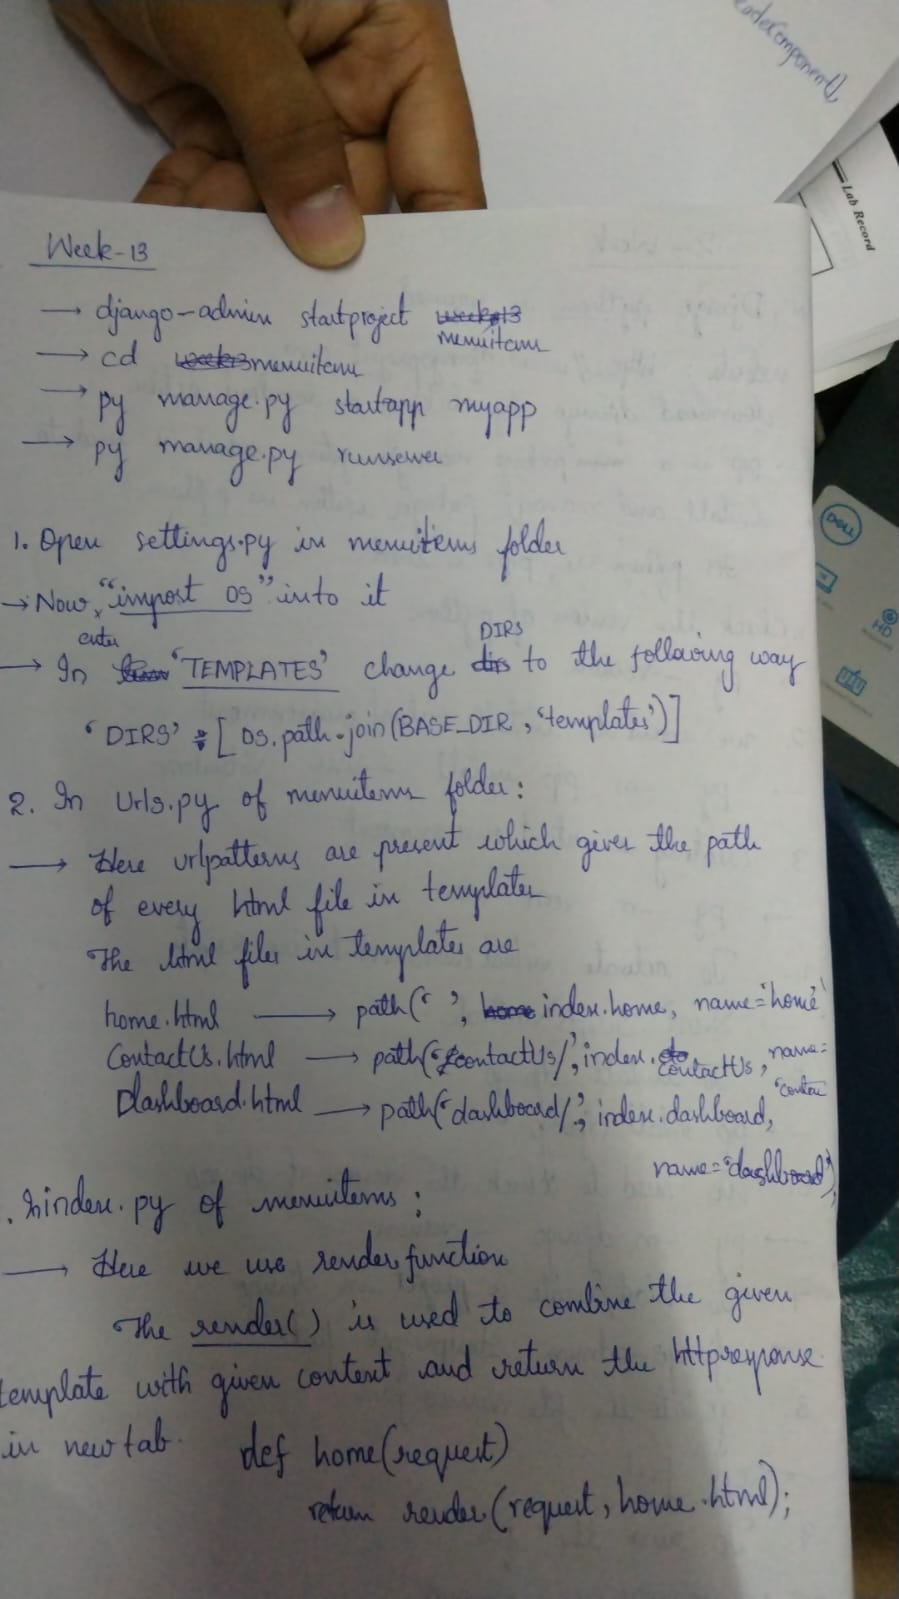 adeComponent(),
Lab Record
DELL
HD
Week-13
→ django-admin startproject menuitems
→ cd menuitems
→ py manage.py startapp myapp
→ py manage.py runserver
1. Open settings.py in menuitems folder
→ Now, enter "import os" into it
→ In 'TEMPLATES' change DIRS to the following way
'DIRS' : [ os.path.join(BASE_DIR, 'templates')]
2. In urls.py of menuitems folder:
→ Here urlpatterns are present which gives the path
of every html file in templates
The html files in templates are
home.html → path(' ', index.home, name='home'
ContactUs.html → path('contactUs/', index.contactUs, name=
'contac
Dashboard.html → path('dashboard/', index.dashboard,
name='dashboard'),
. index.py of menuitems :
→ Here we use render function
The render() is used to combine the given
template with given context and return the httpresponse
in new tab.
def home(request)
return render(request, home.html);